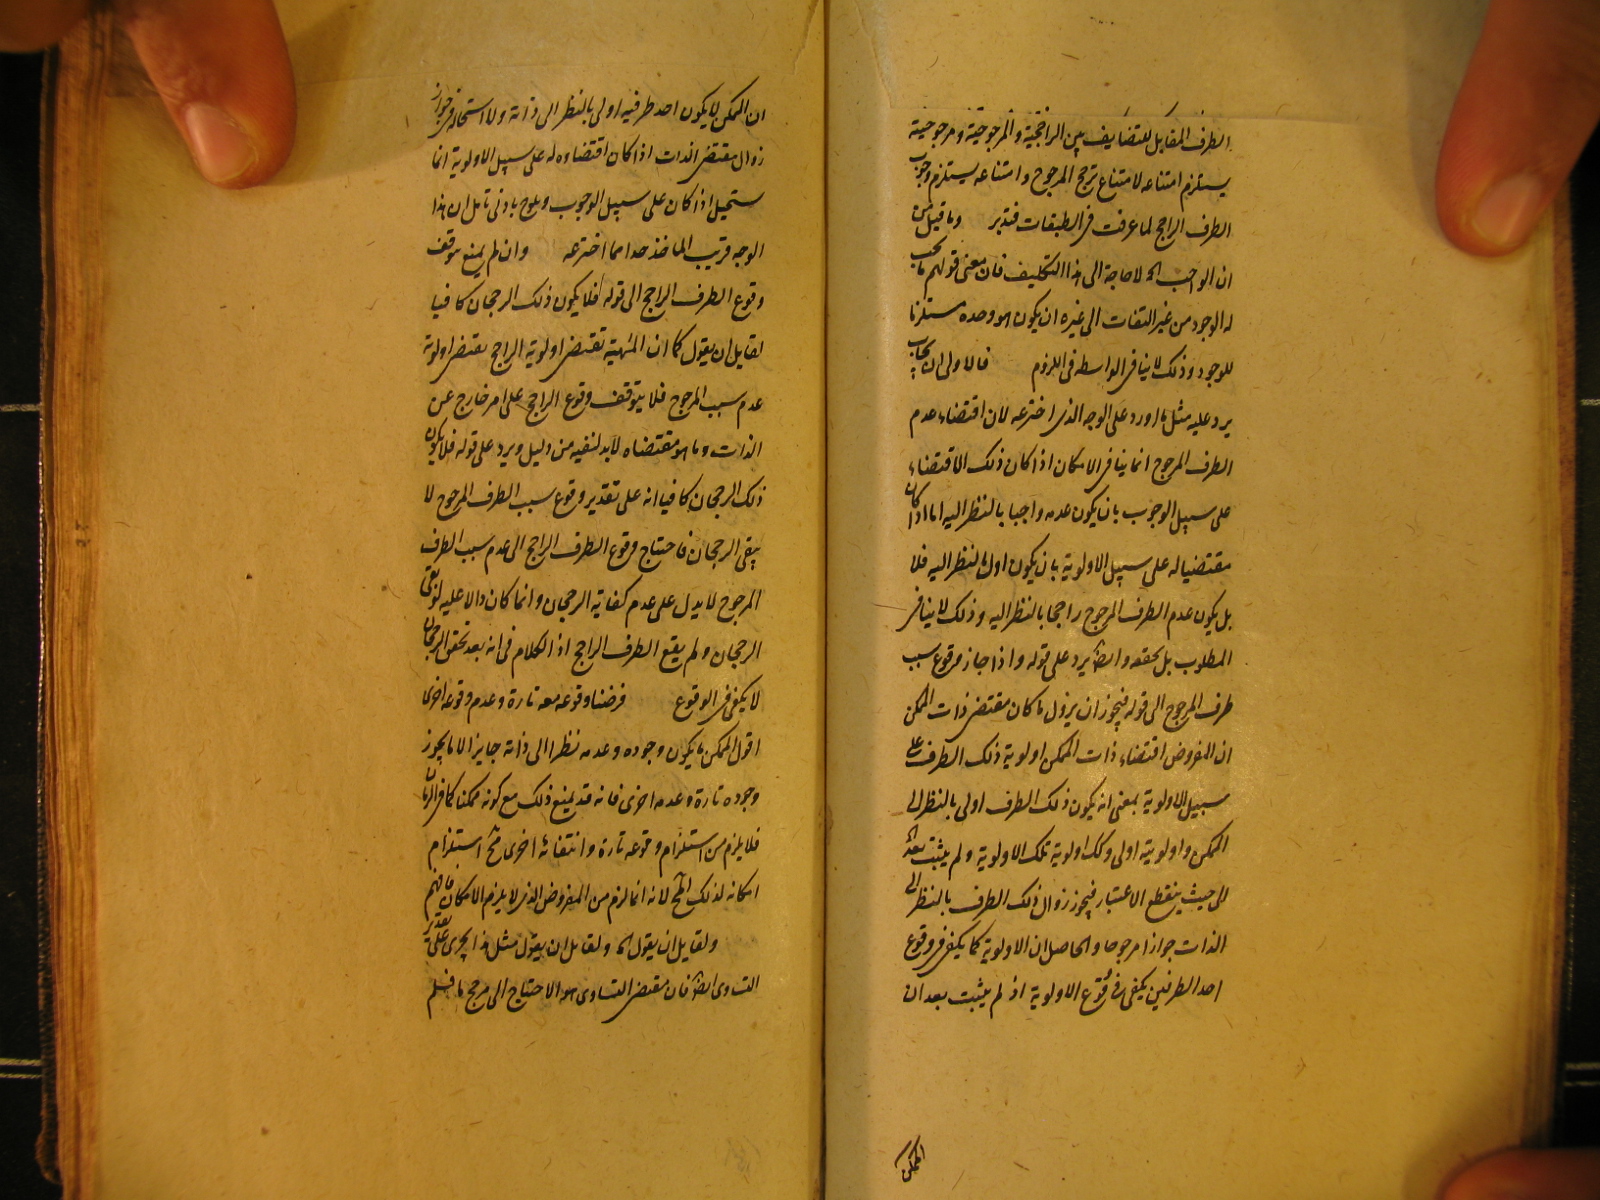 الطرف المقابل للتضايف بين الراجحية والمرجوحية ومرجوحية
يستلزم امتناعه لامتناع ترجح المرجوح وامتناعه يستلزم وجوب
الطرف الراجح لما عرفت في الطبقات فتدبر وما قيل من
ان الواجب الخ لا حاجة الى هذا التكليف فان معنى قولهم ما يجب
له الوجود من غير التفات الى غيره ان يكون هو وحده مستلزما
للوجود وذلك لا ينافي الواسطه في اللزوم فالاولى ان يجاب
يرد عليه مثل ما اورد على الوجه الذي اخترعه لان اقتضاء عدم
الطرف المرجوح انما ينافي الامكان اذا كان ذلك الاقتضاء
على سبيل الوجوب بان يكون عدمه واجبا بالنظر اليه اما اذا كان
مقتضيا له على سبيل الاولوية بان يكون اولى بالنظر اليه فلا
بل يكون عدم الطرف المرجوح راجحا بالنظر اليه وذلك لا ينافي
المطلوب بل يحققه وايضا يرد على قوله واذا جاز وقوع سبب
طرف المرجوح الى قوله فيجوز ان يزول ما كان مقتضى ذات الممكن
ان المفروض اقتضاء ذات الممكن اولوية ذلك الطرف على
سبيل الاولوية بمعنى انه يكون ذلك الطرف اولى بالنظر الى
الممكن واولويته اولى وكك اولوية تلك الاولوية ولم يثبت بعد
الى حيث ينقطع الاعتبار فيجوز زوال ذلك الطرف بالنظر الى
الذات جوازا مرجوحا والحاصل ان الاولوية كما يكفي في وقوع
احد الطرفين يكفي في وقوع الاولوية اذ لم يثبت بعد ان
الممكن
ان الممكن لا يكون احد طرفيه اولى بالنظر الى ذاته ولا استحالة في جواز
زوال مقتضى الذات اذا كان اقتضاوه له على سبيل الاولوية انما
يستحيل اذا كان على سبيل الوجوب ويلوح بادنى تامل ان هذا
الوجه قريب الماخذ جدا مما اخترعه وان لم يمنع توقف
وقوع الطرف الراجح الى قوله فلا يكون ذلك الرجحان كافيا
لقايل ان يقول كما ان المهية تقتضى اولوية الراجح يقتضى اولوية
عدم سبب المرجوح فلا يتوقف وقوع الراجح على امر خارج عن
الذات وما هو مقتضاه لابد لنفيه من دليل ويرد على قوله فلا يكون
ذلك الرجحان كافيا انه على تقدير وقوع سبب الطرف المرجوح لا
يبقى الرجحان فاحتياج وقوع الطرف الراجح الى عدم سبب الطرف
المرجوح لا يدل على عدم كفاية الرجحان وانما كان دالا عليه لو بقى
الرجحان ولم يقع الطرف الراجح اذ الكلام في انه بعد تحقق الرجحان
لا يكفى في الوقوع فرضنا وقوعه معه تارة وعدم وقوعه اخرى
اقول الممكن ما يكون وجوده وعدمه نظرا الى ذاته جايزا لا ما يجوز
وجوده تارة وعدمه اخرى فانه قد يمنع ذلك مع كونه ممكنا كما في الزمان
فلا يلزم من استلزام وقوعه تارة وانتفائه اخرى مح استلزام
امكانه لذلك المح لانه انما لزم من المفروض الذى لا يلزم الامكان فافهم
ولقايل ان يقول الخ ولقايل ان يقول مثل هذا يجرى على تقدير
التساوى ايضا فان مقتضى التساوى هو الاحتياج الى مرجح ما فلم